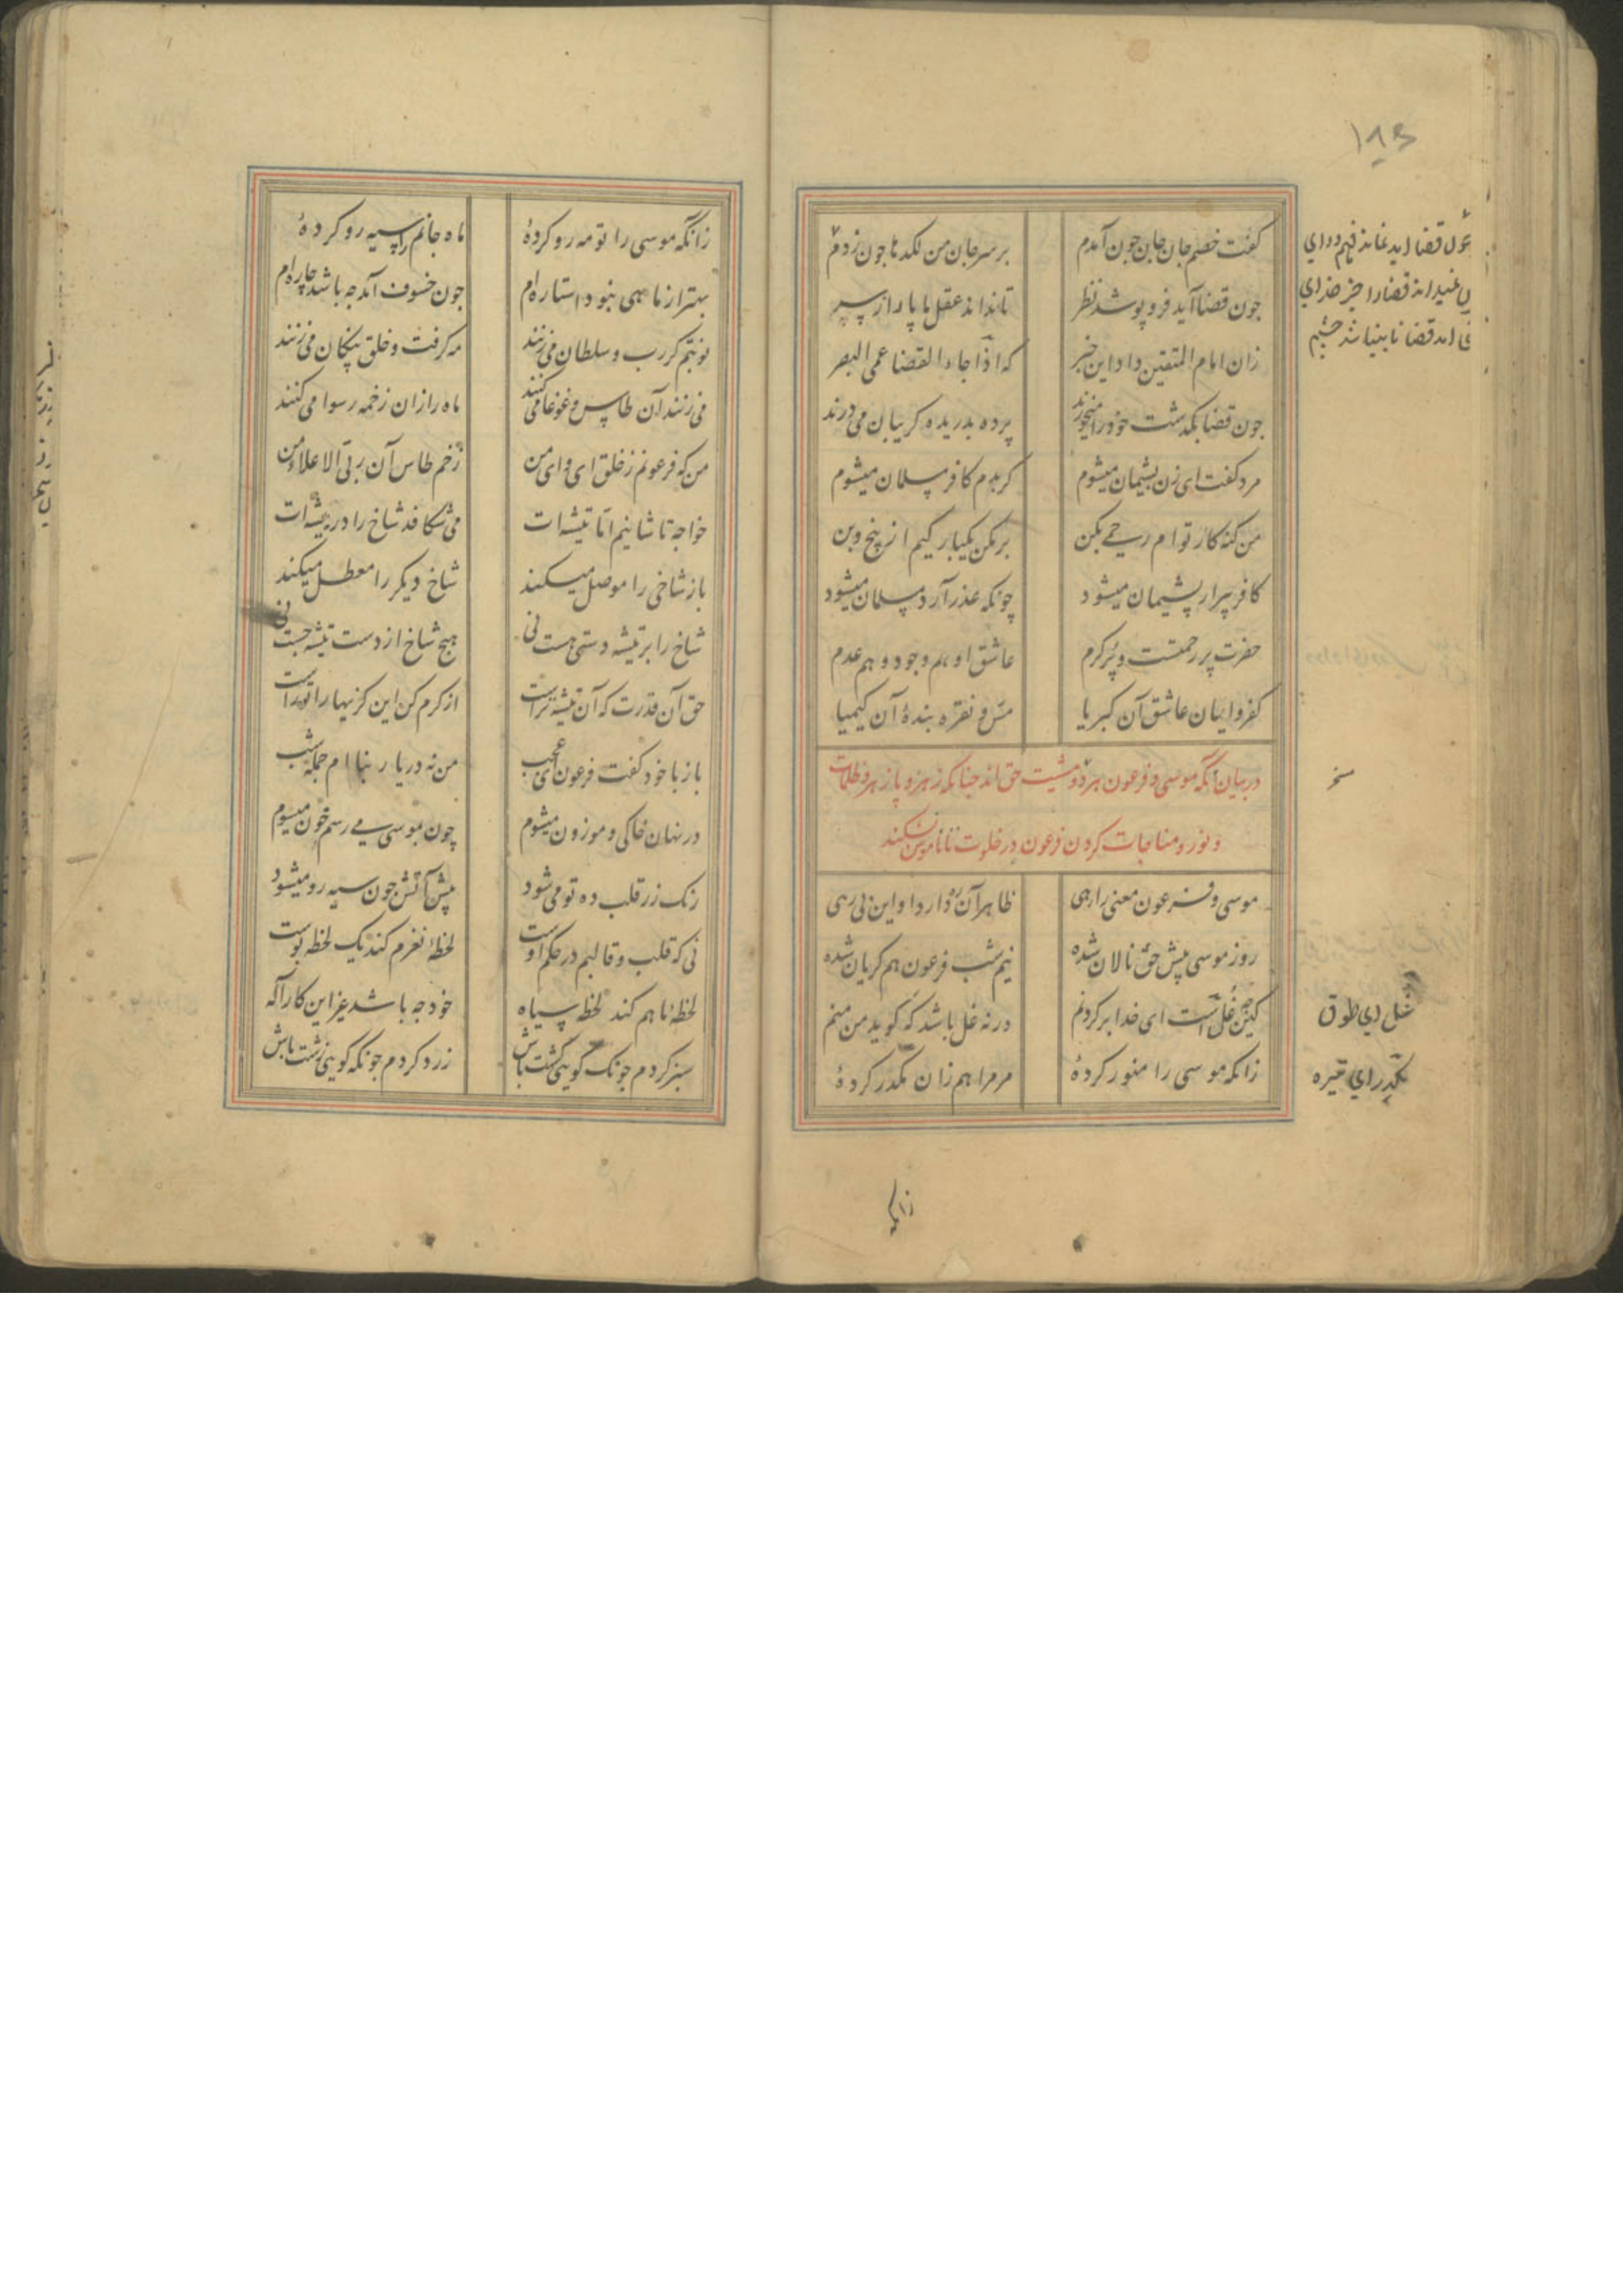 ۱۸۶
کفت خصم جان جان چون آمدم بر سر جان من لکدها چون زدم
جون قضا آید فرو پوشد نظر تا نداند عقل ما پا را ز سر
زان امام المتقین داد این خبر که اذا جاء القضا عمی البصر
جون قضا بکذشت خود را میخورند پرده بدریده کریبان می درند
مرد کفت ای زن پشیمان میشوم کر بدم کافر مسلمان میشوم
من کنه کار توام رحمی بکن بر مکن یکبار کیم از بیخ و بن
کافر پیر ار پشیمان میشود چونکه عذر آرد مسلمان میشود
حضرت پر رحمتست و پر کرم عاشق او هم وجود و هم عدم
کفر و ایمان عاشق آن کبریا مس و نقره بندۀ آن کیمیا
در بیان آنکه موسی و فرعون هر دو مشیت حق اند چنانکه زهر و پازهر و ظلمات
و نور و مناجات کردن فرعون در خلوت تا ناموس نشکند
موسی و فرعون معنی را رهی ظاهر آن ره دارد و این بی رهی
روز موسی پیش حق نالان شده نیم شب فرعون هم کریان شده
کین چه غل است ای خدا بر کردنم ورنه غل باشد که کوید من منم
زانکه موسی را منور کردۀ مر مرا هم زان مکدر کردۀ
نمی داند قضا را جز خدای
غل ای طوق
مکدر ای تیره
زانکه
زانکه موسی را تو مه رو کردۀ ماه جانم را سیه رو کردۀ
بهتر از ماهی نبود استاره ام جون خسوف آمد چه باشد چاره ام
نوبتم کر رب و سلطان می زنند مه کرفت و خلق پنکان می زنند
می زنند آن طاس و غوغا می کنند ماه را زان زخمه رسوا می کنند
من که فرعونم ز خلق ای وای من زخم طاس آن ربی الاعلای من
خواجه تاشانیم اما تیشه ات می شکافد شاخ را در بیشه ات
باز شاخی را موصل میکند شاخ دیکر را معطل میکند
شاخ را بر تیشه دستی هست نی هیچ شاخ از دست تیشه جست نی
حق آن قدرت که آن تیشه تراست از کرم کن این کژیها را تو راست
باز با خود کفت فرعون ای عجب من نه در یا ربنا ام جمله شب
در نهان خاکی و موزون میشوم چون بموسی می رسم چون میشوم
رنک زر قلب ده تو می شود پیش آتش چون سیه رو میشود
نی که قلب و قالبم در حکم اوست لحظۀ نغزم کند یک لحظه پوست
لحظه ماهم کند لحظه سیاه خود چه باشد غیر این کار اله
سبز کردم چونک کوید کشت باش زرد کردم چونکه کوید زشت باش